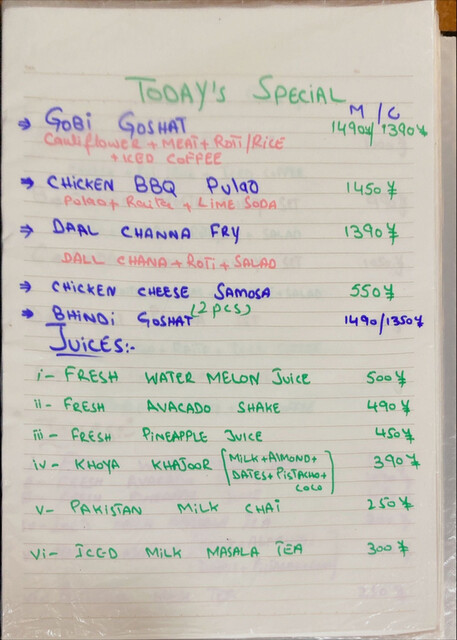 TODAY'S SPECIAL
M / C
⇒ GOBI GOSHAT 1490¥/1390¥
Cauliflower + MEAT + ROTI/RICE
+ ICED COFFEE
⇒ CHICKEN BBQ Pulao 1450¥
Pulao + Raita + LIME SODA
⇒ DAAL CHANNA FRY 1390¥
DALL CHANA + ROTI + SALAD
⇒ CHICKEN CHEESE SAMOSA 550¥
(2 pcs)
⇒ BHINDI GOSHAT 1490/1350¥
JUICES:-
i- FRESH WATER MELON JUICE 500¥
ii- FRESH AVACADO SHAKE 490¥
iii- FRESH PINEAPPLE JUICE 450¥
iv- KHOYA KHAJOOR [MILK+ALMOND+ 390¥
DATES+PISTACHO+
COCO]
v- PAKISTAN MILK CHAI 250¥
vi- ICED MILK MASALA TEA 300¥